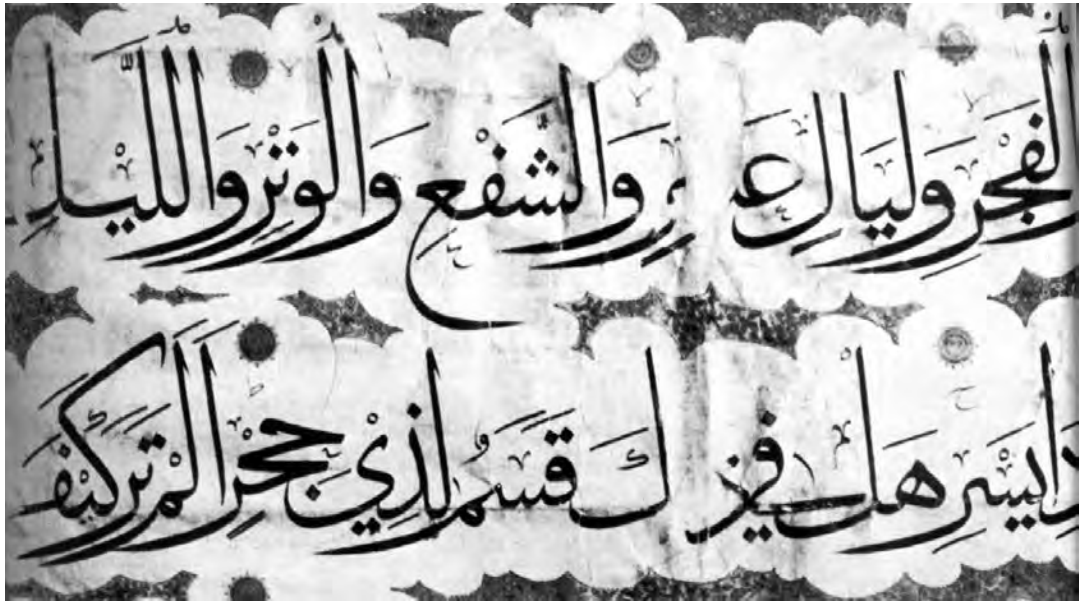 الْفَجْرِ وَلَيَالٍ عَشْرٍ وَالشَّفْعِ وَالْوَتْرِ وَاللَّيْلِ
ذَا يَسْرِ هَلْ فِي ذَلِكَ قَسَمٌ لِذِي حِجْرٍ أَلَمْ تَرَ كَيْفَ